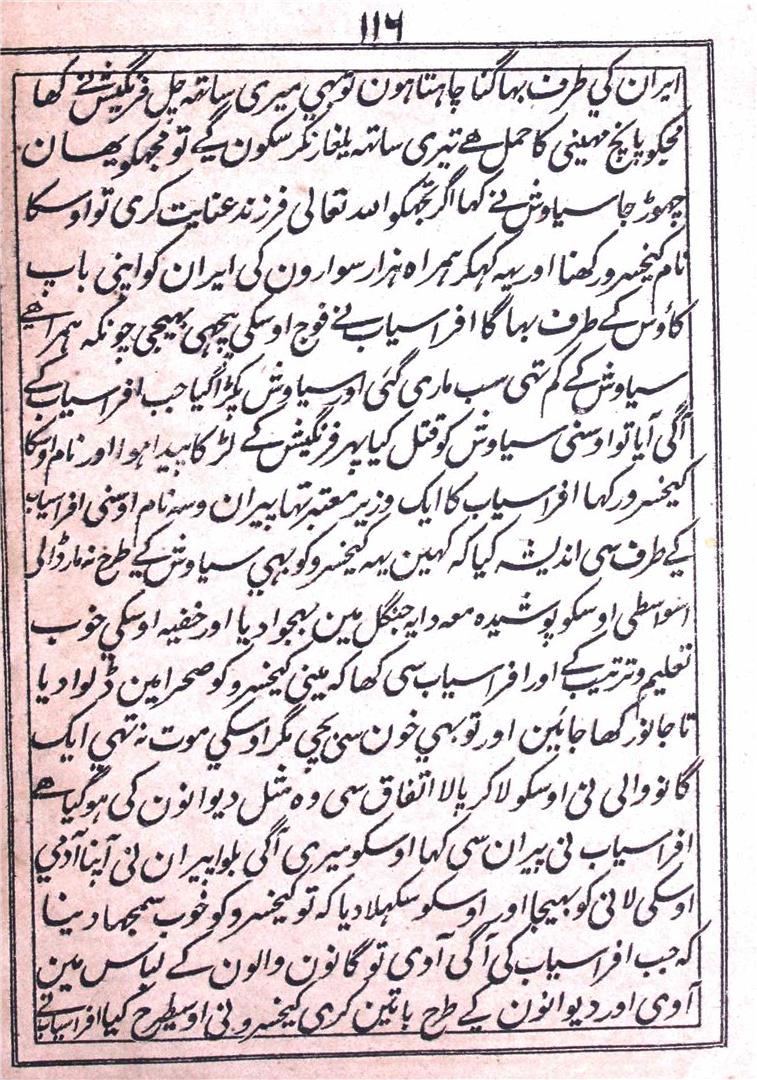 ۱۱۶
ایران کي طرف بہاگنا چاہتاہون توبہي میری ساتہہ چل فرنگیش نے کہا
مجکو پانچ مہینی کا حمل ہے تیری ساتہہ یلغار نکر سکون گے تو مجہکو یہان
چہوڑ جا سیاوش نے کہا اگر تجہکو اللہ تعالی فرزند عنایت کری تو اوسکا
نام کیخسرو رکہنا اور یہہ کہکر ہمراہ ہزار سوارون کی ایران کو اپنی باپ
کاؤس کے طرف بہاگا افراسیاب نے فوج اوسکی پیچہی بہیجی چونکہ ہمراہے
سیاوش کے کم تہی سب ماری گئی اور سیاوش پکڑا گیا جب افراسیاب کے
آگی آیا تو اوسنی سیاوش کو قتل کیا پہر فرنگیش کے لڑکا پیدا ہوا اور نام اوسکا
کیخسرو رکہا افراسیاب کا ایک وزیر معتبر تہا پیران وسہ نام اوسنی افراسیاب
کے طرف سی اندیشہ کیا کہ کہین یہہ کیخسرو کو بہي سیاوش کے طرح نہ مار ڈالی
اسواسطی اوسکو پوشیدہ معہ دایہ جنگل مین بہجوا دیا اور خفیہ اوسکي خوب
تعلیم و ترتیب کے اور افراسیاب سی کہا کہ مینی کیخسرو کو صحرا مین ڈلوا دیا
تا جانور کہا جائین اور تو بہي خون سی بچی مگر اوسکي موت نہ تہي ایک
گانو والی نی اوسکو لاکر پالا اتفاق سی وہ مثل دیوانون کی ہوگیا ہے
افراسیاب نی پیران سی کہا اوسکو میری آگی بلوا پیران نی اپنا آدمي
اوسکی لانی کو بہیجا اور اوسکو سکہلا دیا کہ تو کیخسرو کو خوب سمجہا دینا
کہ جب افراسیاب کی آگی آوی تو گانون والون کے لباس مین
آوی اور دیوانون کے طرح باتین کری کیخسرو نی اوسیطرح کیا افراسیاب نے